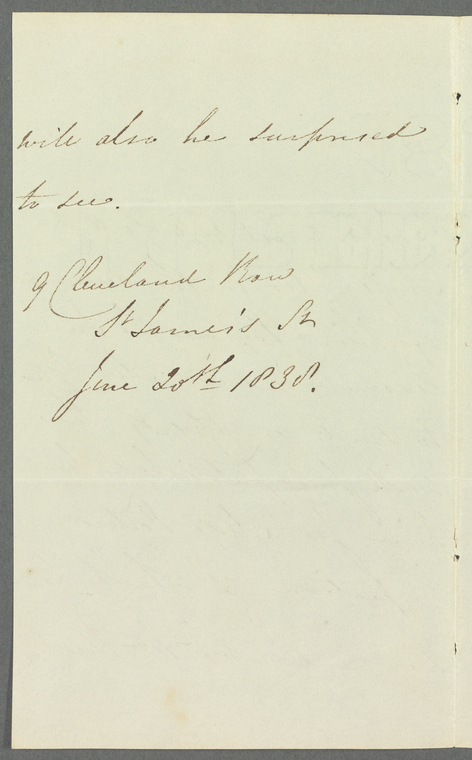 will also be surprised
to see.
9 Cleveland Row
St James's St
June 20th 1838.